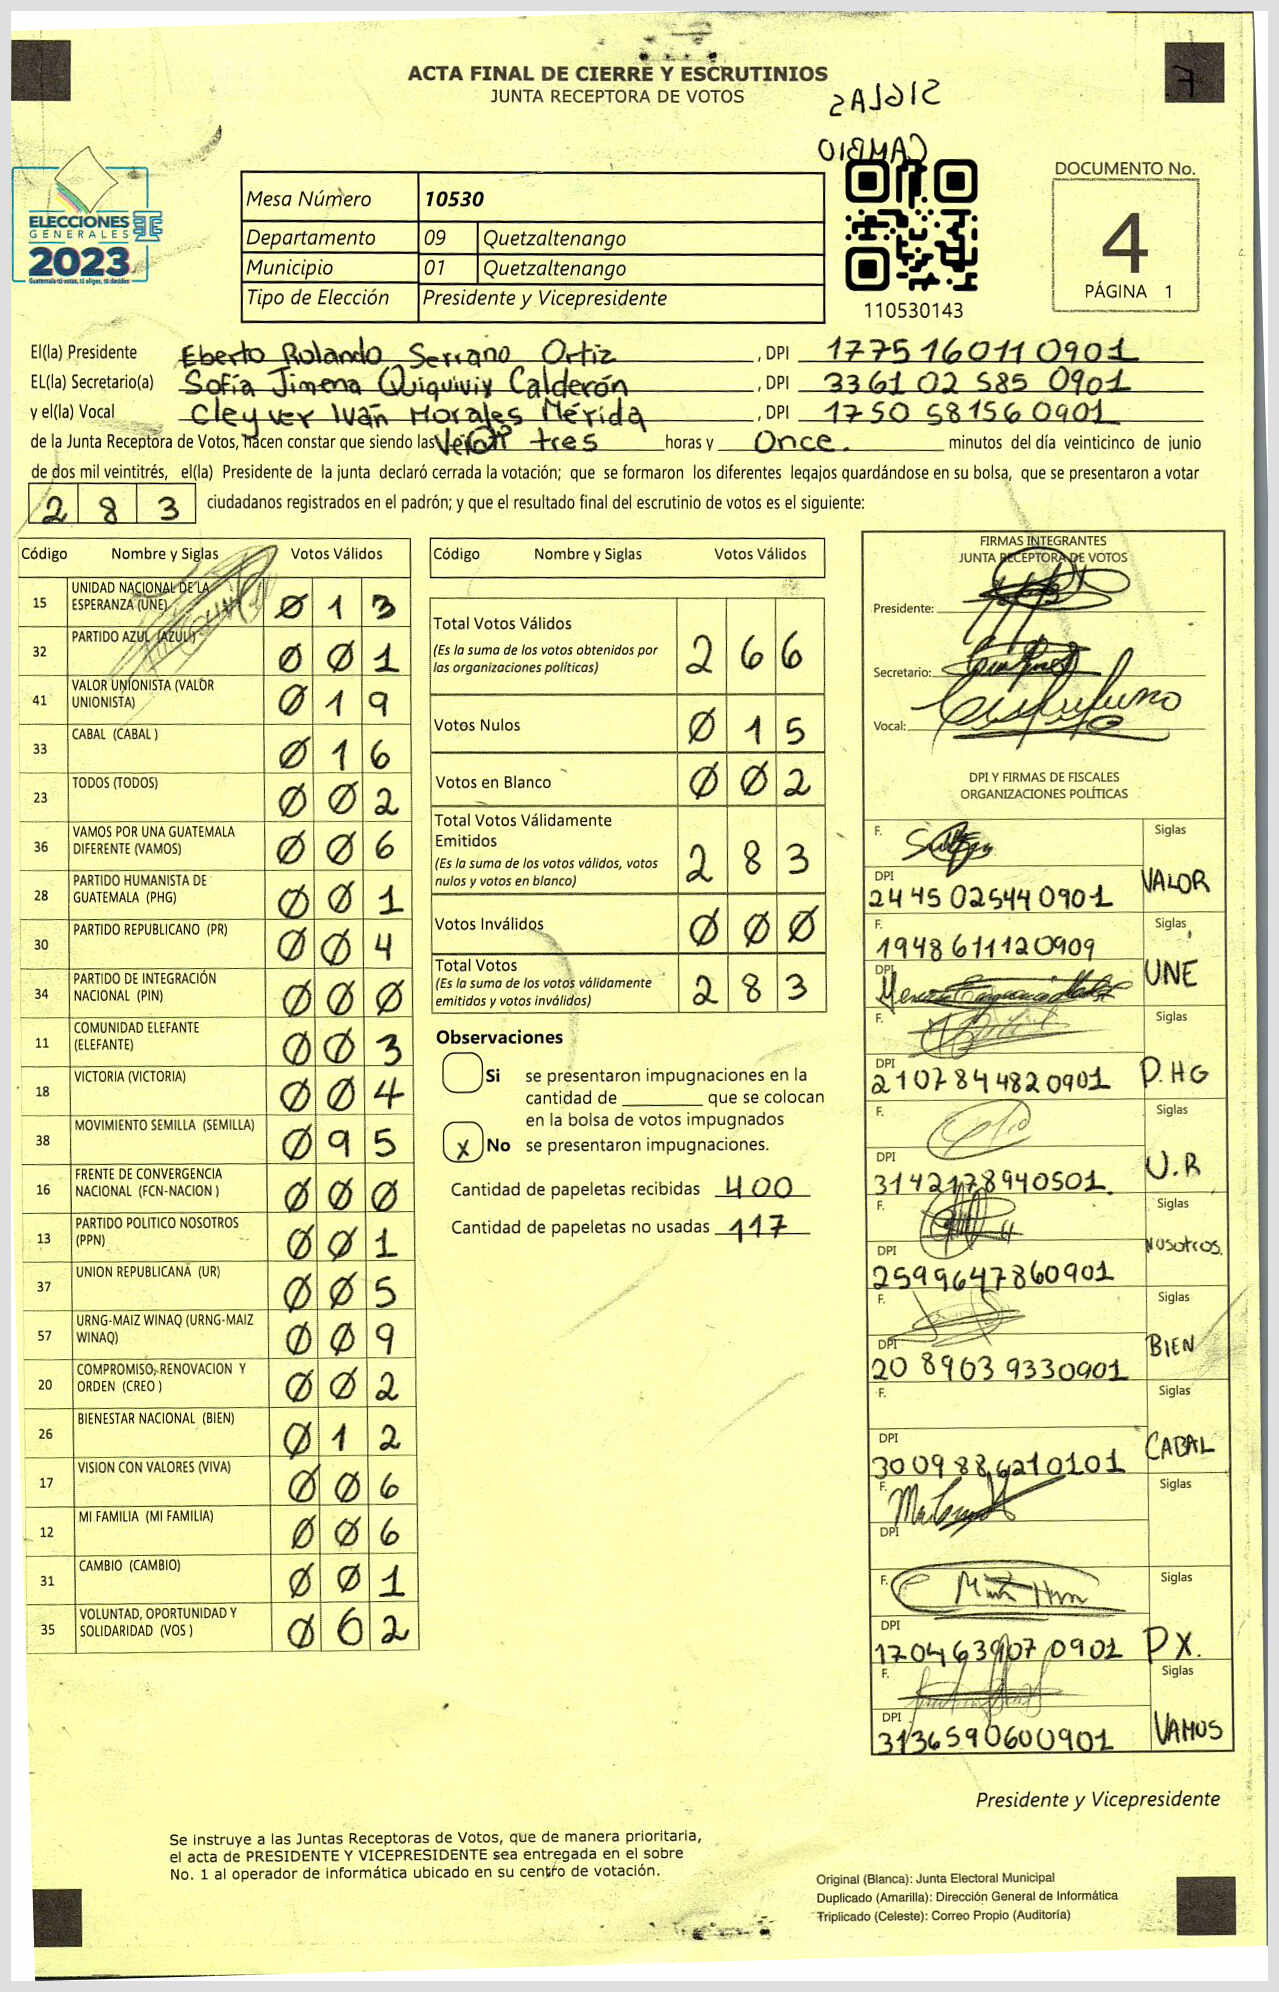 ACTA FINAL DE CIERRE Y ESCRUTINIOS
JUNTA RECEPTORA DE VOTOS
SIGLAS
CAMBIO
F.
ELECCIONES
GENERALES
2023
Guatemala tú votas, tú eliges, tú decides
Mesa Número 10530
Departamento 09 Quetzaltenango
Municipio 01 Quetzaltenango
Tipo de Elección Presidente y Vicepresidente
110530143
DOCUMENTO No.
4
PÁGINA 1
El(la) Presidente Eberto Rolando Serrano Ortiz , DPI 1775160110901
EL(la) Secretario(a) Sofía Jimena Quiquivix Calderón , DPI 3361 02 585 0901
y el(la) Vocal Cleyver Iván Morales Mérida , DPI 1750 58156 0901
de la Junta Receptora de Votos, hacen constar que siendo las Veinti tres horas y Once. minutos del día veinticinco de junio
de dos mil veintitrés, el(la) Presidente de la junta declaró cerrada la votación; que se formaron los diferentes legajos guardándose en su bolsa, que se presentaron a votar
283 ciudadanos registrados en el padrón; y que el resultado final del escrutinio de votos es el siguiente:
Código Nombre y Siglas Votos Válidos
15 UNIDAD NACIONAL DE LA ESPERANZA (UNE) Ø13
32 PARTIDO AZUL (AZUL) ØØ1
41 VALOR UNIONISTA (VALOR UNIONISTA) Ø19
33 CABAL (CABAL ) Ø16
23 TODOS (TODOS) ØØ2
36 VAMOS POR UNA GUATEMALA DIFERENTE (VAMOS) ØØ6
28 PARTIDO HUMANISTA DE GUATEMALA (PHG) ØØ1
30 PARTIDO REPUBLICANO (PR) ØØ4
34 PARTIDO DE INTEGRACIÓN NACIONAL (PIN) ØØØ
11 COMUNIDAD ELEFANTE (ELEFANTE) ØØ3
18 VICTORIA (VICTORIA) ØØ4
38 MOVIMIENTO SEMILLA (SEMILLA) Ø95
16 FRENTE DE CONVERGENCIA NACIONAL (FCN-NACION ) ØØØ
13 PARTIDO POLITICO NOSOTROS (PPN) ØØ1
37 UNION REPUBLICANA (UR) ØØ5
57 URNG-MAIZ WINAQ (URNG-MAIZ WINAQ) ØØ9
20 COMPROMISO, RENOVACION Y ORDEN (CREO ) ØØ2
26 BIENESTAR NACIONAL (BIEN) Ø12
17 VISION CON VALORES (VIVA) ØØ6
12 MI FAMILIA (MI FAMILIA) ØØ6
31 CAMBIO (CAMBIO) ØØ1
35 VOLUNTAD, OPORTUNIDAD Y SOLIDARIDAD (VOS ) Ø62
Código Nombre y Siglas Votos Válidos
Total Votos Válidos
(Es la suma de los votos obtenidos por
las organizaciones políticas) 266
Votos Nulos Ø15
Votos en Blanco ØØ2
Total Votos Válidamente
Emitidos
(Es la suma de los votos válidos, votos
nulos y votos en blanco) 283
Votos Inválidos ØØØ
Total Votos
(Es la suma de los votos válidamente
emitidos y votos inválidos) 283
Observaciones
Si se presentaron impugnaciones en la
cantidad de ________ que se colocan
en la bolsa de votos impugnados
x No se presentaron impugnaciones.
Cantidad de papeletas recibidas 400
Cantidad de papeletas no usadas 117
FIRMAS INTEGRANTES
JUNTA RECEPTORA DE VOTOS
Presidente:
Secretario:
Vocal:
DPI Y FIRMAS DE FISCALES
ORGANIZACIONES POLÍTICAS
F. Siglas
DPI
2445025440901 VALOR
F. Siglas
1948611120909
DPI UNE
F. Siglas
DPI
2107844820901 P.HG
F. Siglas
DPI
3142178940501 U.R
F. Siglas
DPI
2599647860901 NOSOTROS.
F. Siglas
DPI
20 89039330901 BIEN
F. Siglas
DPI
3009886210101 CABAL
F. Siglas
DPI
F. Siglas
DPI
1704639070901 PX.
F. Siglas
DPI
3136590600901 VAMOS
Presidente y Vicepresidente
Se instruye a las Juntas Receptoras de Votos, que de manera prioritaria,
el acta de PRESIDENTE Y VICEPRESIDENTE sea entregada en el sobre
No. 1 al operador de informática ubicado en su centro de votación.
Original (Blanca): Junta Electoral Municipal
Duplicado (Amarilla): Dirección General de Informática
Triplicado (Celeste): Correo Propio (Auditoría)